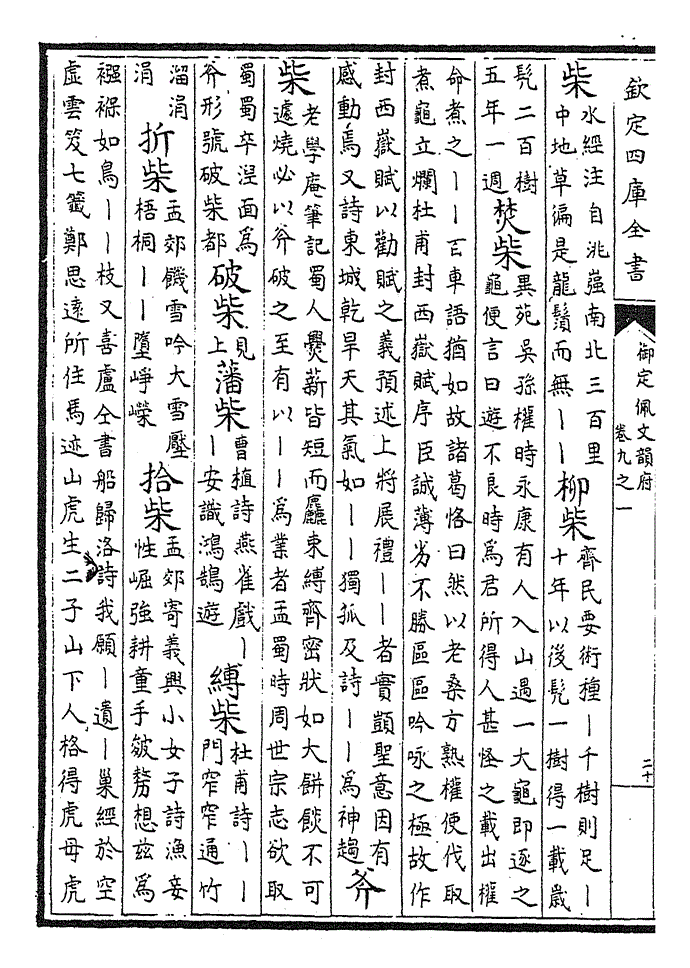 欽定四庫全書
御定佩文韻府
卷九之一
二十
柴
水經注自洮强南北三百里
中地草徧是龍鬚而無丨丨
柳柴
齊民要術種丨千樹則足丨
十年以後髡一樹得一載歲
髡二百樹
五年一週
焚柴
異苑吳孫權時永康有人入山遇一大龜即逐之
龜便言曰遊不良時為君所得人甚怪之載出權
命煮之丨丨百車語猶如故諸葛恪曰然以老桑方熟權便伐取
煮龜立爛杜甫封西嶽賦序臣誠薄劣不勝區區吟咏之極故作
封西嶽賦以勸賦之義預述上將展禮丨丨者實顗聖意因有
感動焉又詩東城乾旱天其氣如丨丨獨孤及詩丨丨為神趨
斧
柴
老學庵筆記蜀人爨薪皆短而麤束縛齊密狀如大餅餤不可
遽燒必以斧破之至有以丨丨為業者孟蜀時周世宗志欲取
蜀蜀卒涅面為
斧形號破柴都
破柴
見
上
藩柴
曹植詩燕雀戲丨
丨安識鴻鵠遊
縛柴
杜甫詩丨丨
門窄窄通竹
溜涓
涓
折柴
孟郊饑雪吟大雪壓
梧桐丨丨墮崢嶸
拾柴
孟郊寄義興小女子詩漁妾
性崛強耕童手皴㿨想兹為
襁褓如鳥丨丨枝又喜盧仝書船歸洛詩我願丨遺丨巢經於空
虛雲笈七籤鄭思遠所住馬迹山虎生二子山下人格得虎母虎